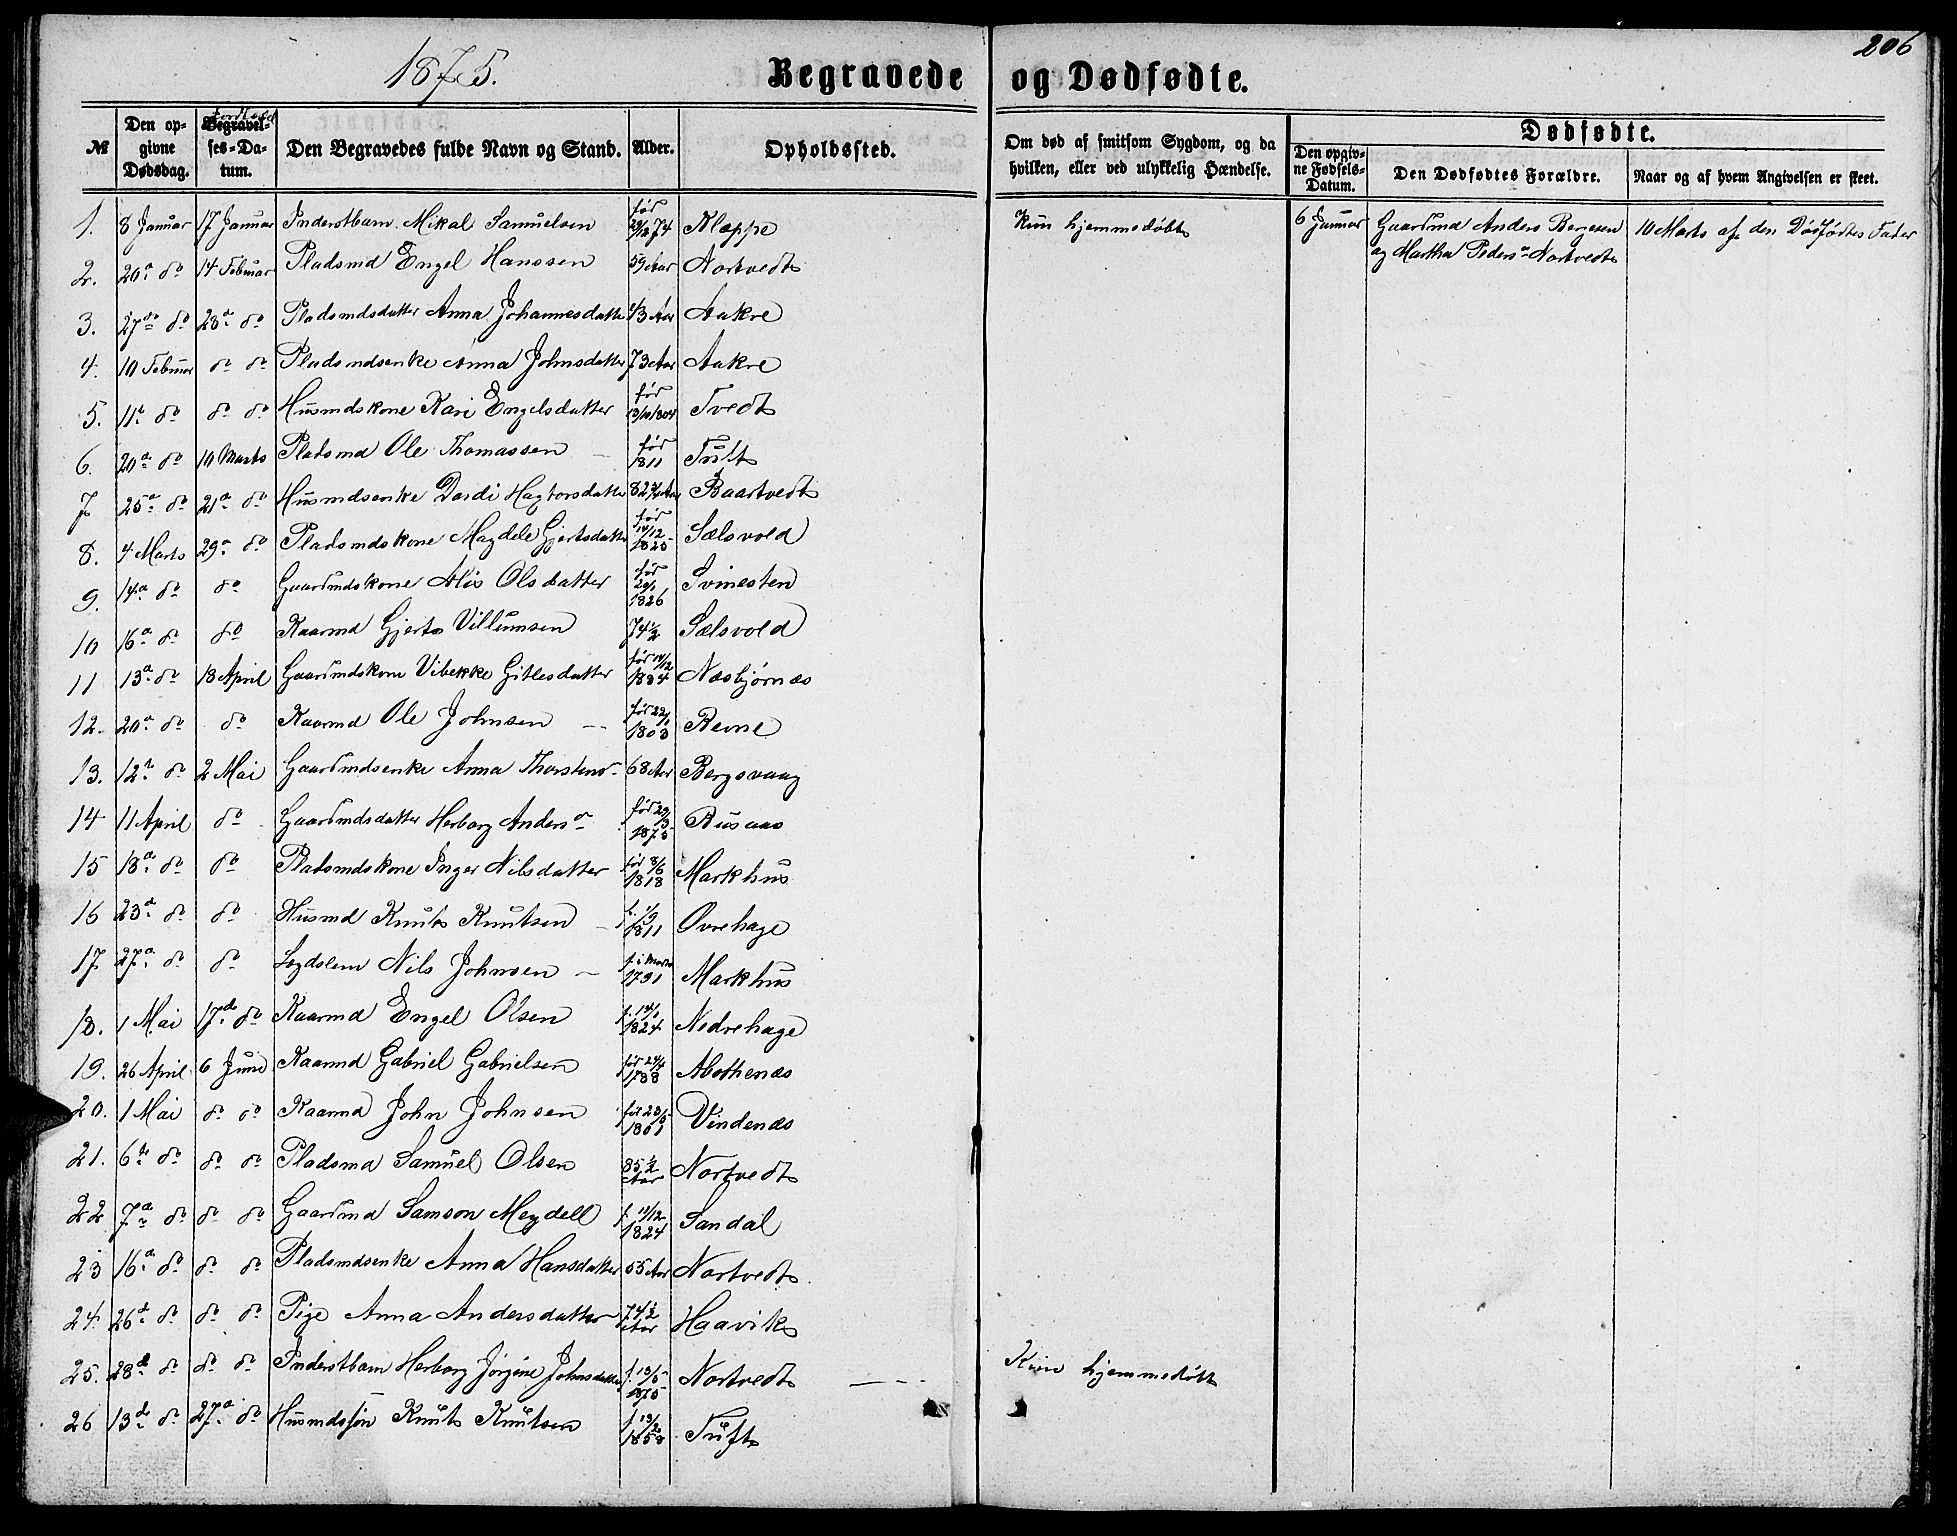 206
1875.
Begravede og Dødfødte.
№
Den opgivne Dødsdag.
Jordfæst
Begravelses-Datum.
Den Begravedes fulde Navn og Stand.
Alder.
Opholdssted.
Om død af smitsom Sygdom, og da hvilken, eller ved ulykkelig Hændelse.
Dødfødte.
Den opgivne Fødsels-Datum.
Den Dødfødtes Forældre.
Naar og af hvem Angivelsen er skeet.
1. 8 Januar 17 Januar Inderstbarn Mikal Samuelsen før 29/12 74 Klæppe Kun hjemmedøbt 6 Januar Gaardmd Anders Børgesen 10 Marts af den Dødfødtes Fader
og Martha Peders- Nortvedt
2. 20de do 14 Februar Pladsmd Engel Hanssen 59 Aar Nortvedt
3. 27de do 28de do Pladsmdsdatter Anna Johannesdatter 43 Aar Aakre
4. 10 Februar do do Pladsmdsenke Anna Johnsdatter 73 Aar Aakre
5. 11te do do do Husmdskone Kari Engelsdatter før 13/10 1804 Tvedt
6. 20de do 10 Marts Pladsmd Ole Thomassen før 1811 Tuft
7. 25de do 21de do Husmdsenke Dordi Hagtorsdatter Baartvedt
8. 4 Marts 29de do Pladsmdskone Magdele Gjertsdatter før 14/12 1825 Sælsvold
9. 14de do do Gaardmdskone Alis Olsdatter før 1826 Svinesten
10 16de do do Kaarmd Gjert Villumsen 74½ Sælsvold
11 13de do 18 April Gaardmdskone Vibekke Gitlesdatter før 14/12 1834 Næsbjørnæs
12. 20de do do Kaarmd Ole Johnsen før 22/1 1803 Revne
13. 12te do 2 Mai Gaardmdsenke Anna Thorstens- 68 Aar Bergsvaag
14 11 April do Gaardmdsdatter Herborg Anders- før 29/3 1875 Busaas
15 18de do do Pladsmdskone Inger Nilsdatter før 8/6 1818 Markhus
16 23de do do Husmd Knut Knutsen f. 1/9 1811 Øvrehage
17 27de do do Lægdslem Nils Johnsen f. i Marts 1791 Markhus
18. 1 Mai 17de do Kaarmd Engel Olsen f. 14/1 1824 Nedrehage
19. 26 April 6 Juni Kaarmd Gabriel Gabrielsen før 24/4 1788 Mosthenæs
20. 1 Mai do do Kaarmd John Johnsen før 23/5 1801 Vindenæs
21. 6te do do do Pladsmd Samuel Olsen 85½ Aar Nortvedt
22 7de do do do Gaardmd Samson Meydell f. 11/12 1824 Sandal
23 16de do do do Pladsmdsenke Anna Hansdatter 65 Aar Nortvedt
24 26de do do do Pige Anna Andersdatter 74½ Aar Haavik
25. 28de do do do Inderstbarn Herborg Jørgine Johnsdatter f. 13/5 1875 Nortvedt Kun hjemmedøbt
26 13de do 27de do Husmdsøn Knut Knutsen f. 13/2 1858 Tuft